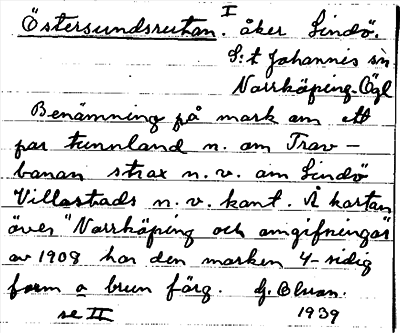 Östersundsrutan. I åker Lindö.
S:t Johannis sn
Norrköping. Ögl
Benämning på mark om ett
par tunnland n. om Trav-
banan strax n. v. om Lindö
Villastads n. v. kant. Å kartan
över "Norrköping och omgifningar"
av 1908 har den marken 4-sidig
form o brun färg. G. Ekman.
se II 1939